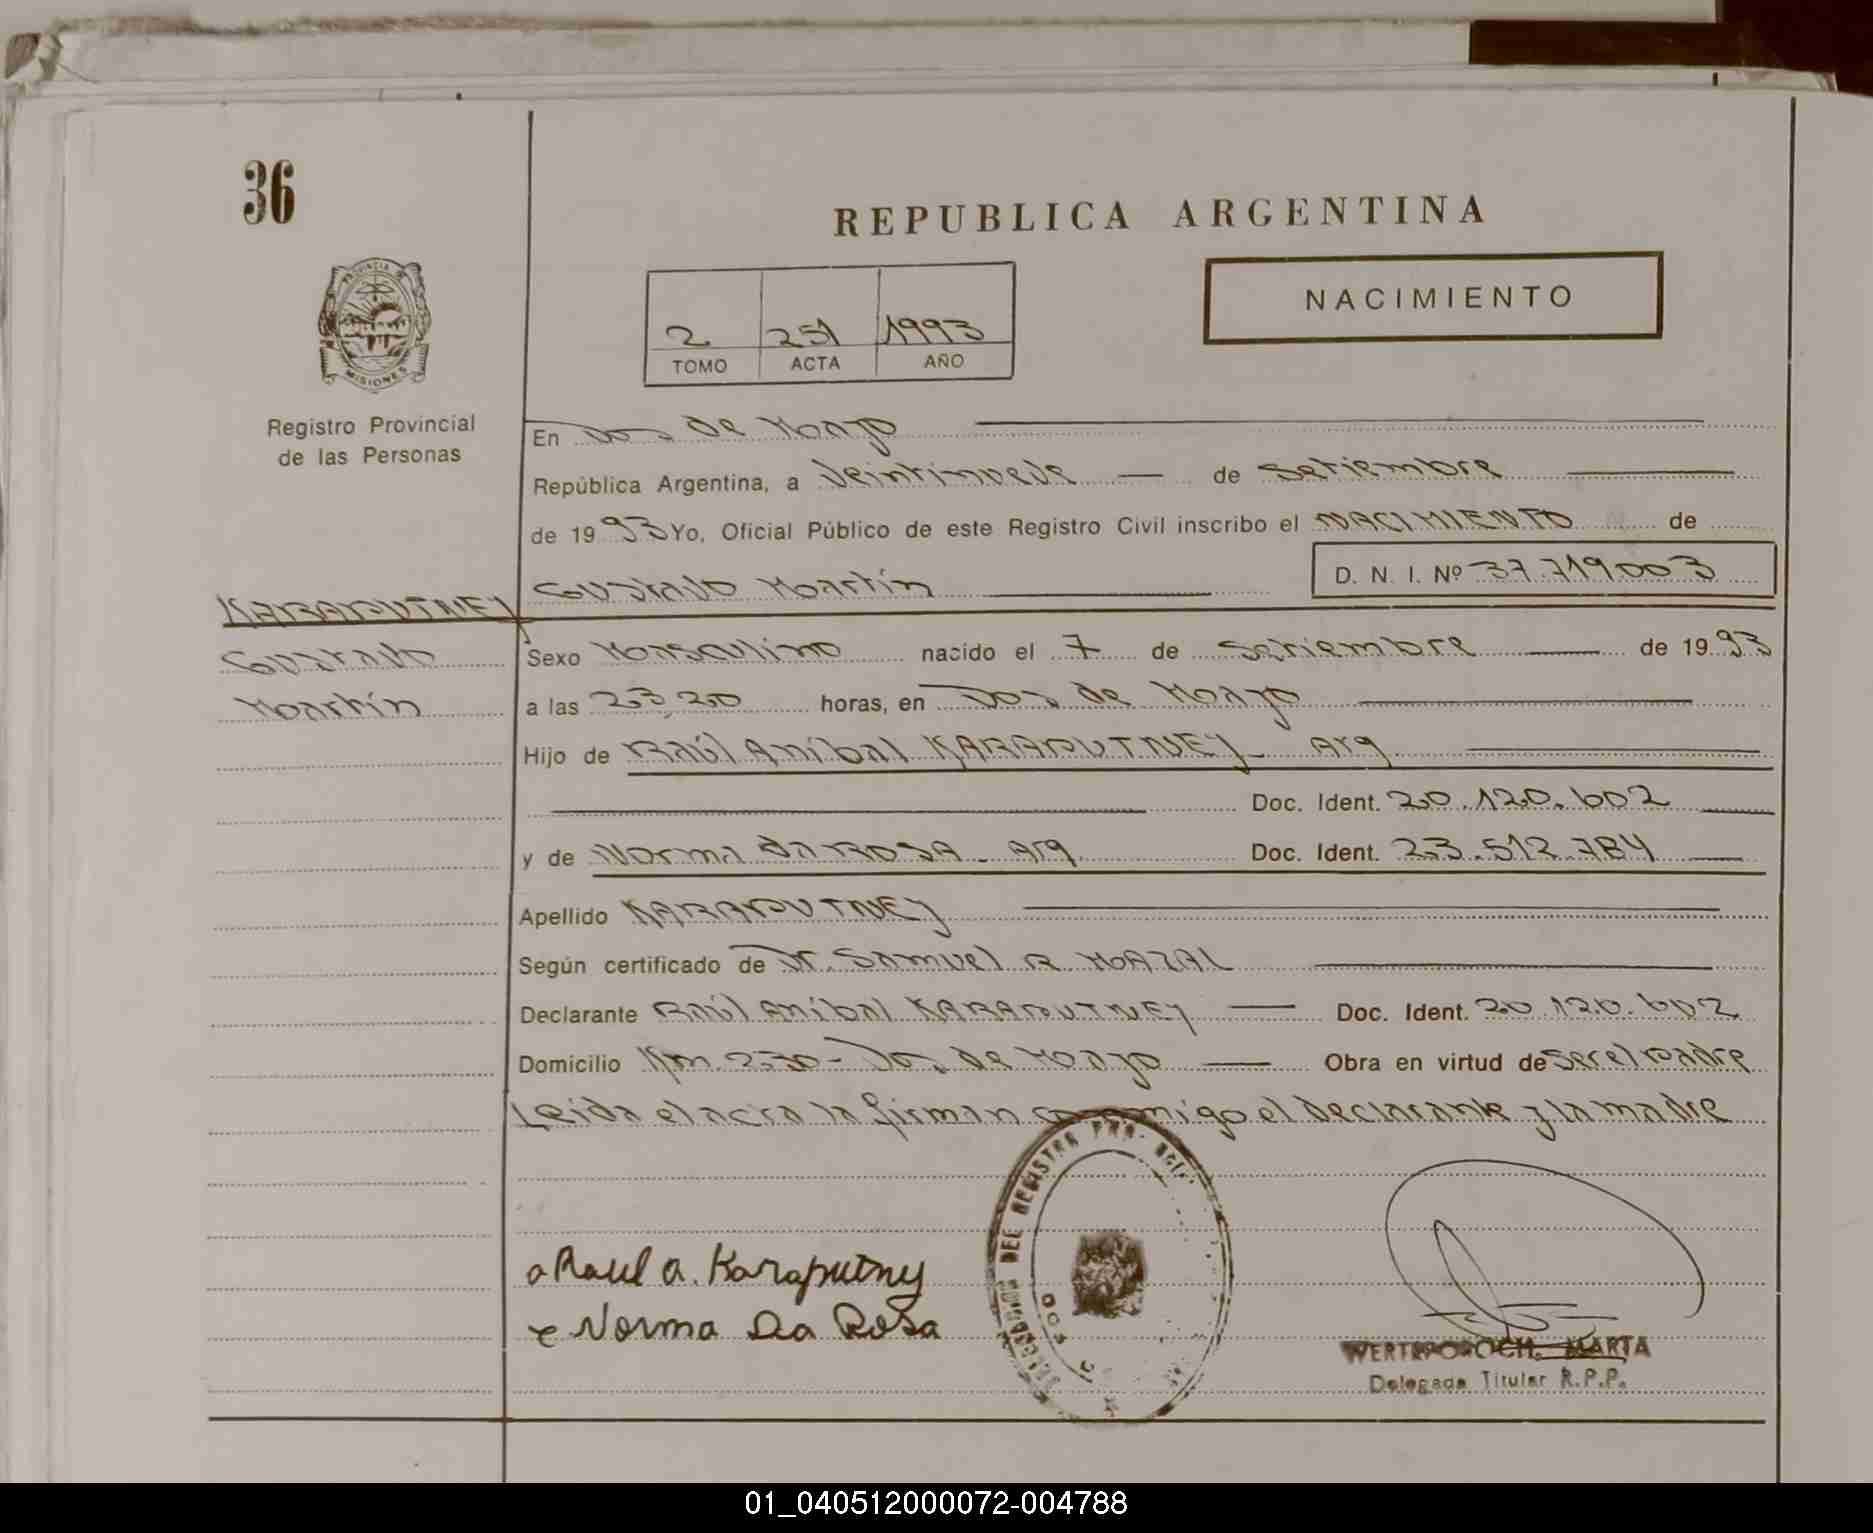 36
REPUBLICA ARGENTINA
NACIMIENTO
2 251 1993
TOMO ACTA AÑO
PROVINCIA DE
MISIONES
Registro Provincial
de las Personas
En Dos de Mayo
República Argentina, a Veintinueve de Setiembre
de 1993 Yo, Oficial Público de este Registro Civil inscribo el NACIMIENTO de
Gustavo Martín D. N. I. Nº 37.719.003
KARAPUTNEY
Gustavo
Martín
Sexo Masculino nacido el 7 de Setiembre de 1993
a las 23,20 horas, en Dos de Mayo
Hijo de Raúl Aníbal KARAPUTNEY - Arg
Doc. Ident. 20.120.602
y de Norma da ROSA - Arg Doc. Ident. 23.512.784
Apellido KARAPUTNEY
Según certificado de Dr. Samuel R. MAZAL
Declarante Raúl Aníbal KARAPUTNEY Doc. Ident. 20.120.602
Domicilio Km. 230 - Dos de Mayo Obra en virtud de ser el padre
Leida el acta la firman conmigo el declarante y la madre
DEL REGISTRO
Raul a. Karaputny
Norma Da Rosa
WERTEPOROCH, MARTA
Delegada Titular R.P.P.
01_040512000072-004788